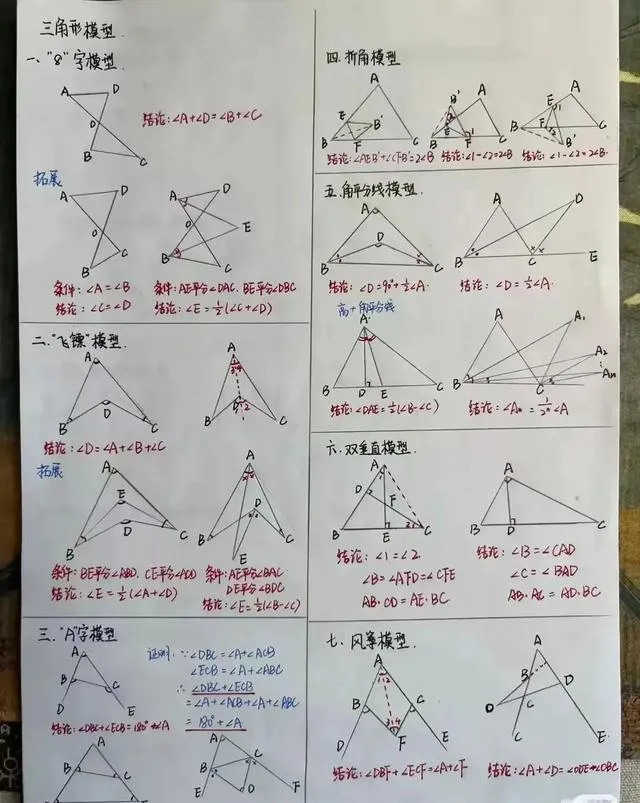 三角形模型.
一、"8"字模型.
A D
O
B C
结论:∠A+∠D=∠B+∠C
拓展
A D
O
B C
A D
O E
B C
条件:∠A=∠B
结论:∠C=∠D
条件:AE平分∠DAC, BE平分∠DBC
结论:∠E=½(∠C+∠D)
二、"飞镖"模型.
A
D
B C
A
3 4
D 1 2
B C
结论:∠D=∠A+∠B+∠C
拓展
A
E
D
B C
A
D
B C
E
条件:BE平分∠ABD, CE平分∠ACD
结论:∠E=½(∠A+∠D)
条件:AE平分∠BAC
DE平分∠BDC
结论:∠E=½(∠B-∠C)
三、"A"字模型
A
B C
D E
结论:∠DBC+∠ECB=180°+∠A
证明:∵∠DBC=∠A+∠ACB
∠ECB=∠A+∠ABC
∴ ∠DBC+∠ECB
=∠A+∠ACB+∠A+∠ABC
=180°+∠A
A
B C
A
B C
D F
四、折角模型
A
E B'
B F C
B' A
E 1
B F C
E 1 A
F 2
B C
B'
结论:∠AEB'+∠CFB'=2∠B
结论:∠1-∠2=2∠B
结论:∠1-∠2=2∠B.
五、角平分线模型.
A
D
B C
A D
B C E
结论:∠D=90°+½∠A.
结论:∠D=½∠A.
高+角平分线
A
B D E C
A A₁
A₂
Aₙ
B C
结论:∠DAE=½(∠B-∠C)
结论:∠Aₙ=1/2ⁿ∠A
六、双垂直模型
A
D F
B E C
A
B D C
结论:∠1=∠2
∠B=∠AFD=∠CFE
AB·CD=AE·BC
结论:∠B=∠CAD
∠C=∠BAD
AB·AC=AD·BC
七、风筝模型
A
1 2
B C
3 4
D F E
A
B D
C E
结论:∠DBF+∠ECF=∠A+∠F